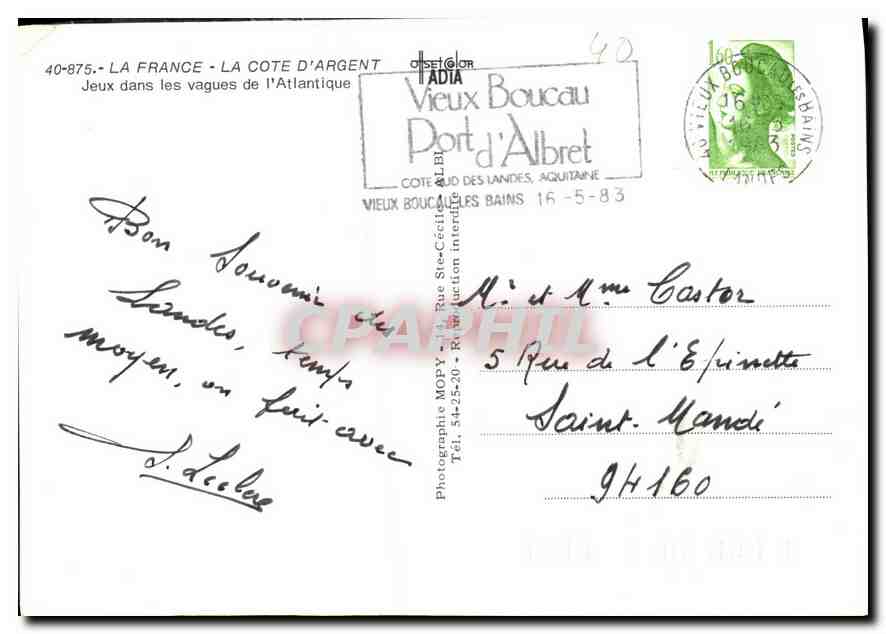 40-875.- LA FRANCE - LA COTE D'ARGENT
Jeux dans les vagues de l'Atlantique
OFFSETCOLOR
ADIA
40
Vieux Boucau
Port d'Albret
COTE SUD DES LANDES, AQUITAINE
VIEUX BOUCAU LES BAINS 16 -5-83
1,60
VIEUX BOUCAU LES BAINS
16
POSTES
Photographie MOPY - 14, Rue Ste-Cécile - ALBI
Tél. 54-25-20 - Reproduction interdite
Bon Souvenir des
Landes, temps
moyen, on fait avec
S. Leclerc
Mr et Mme Castor
5 Rue de l'Epinette
Saint-Mandé
94160
CPAPHIL